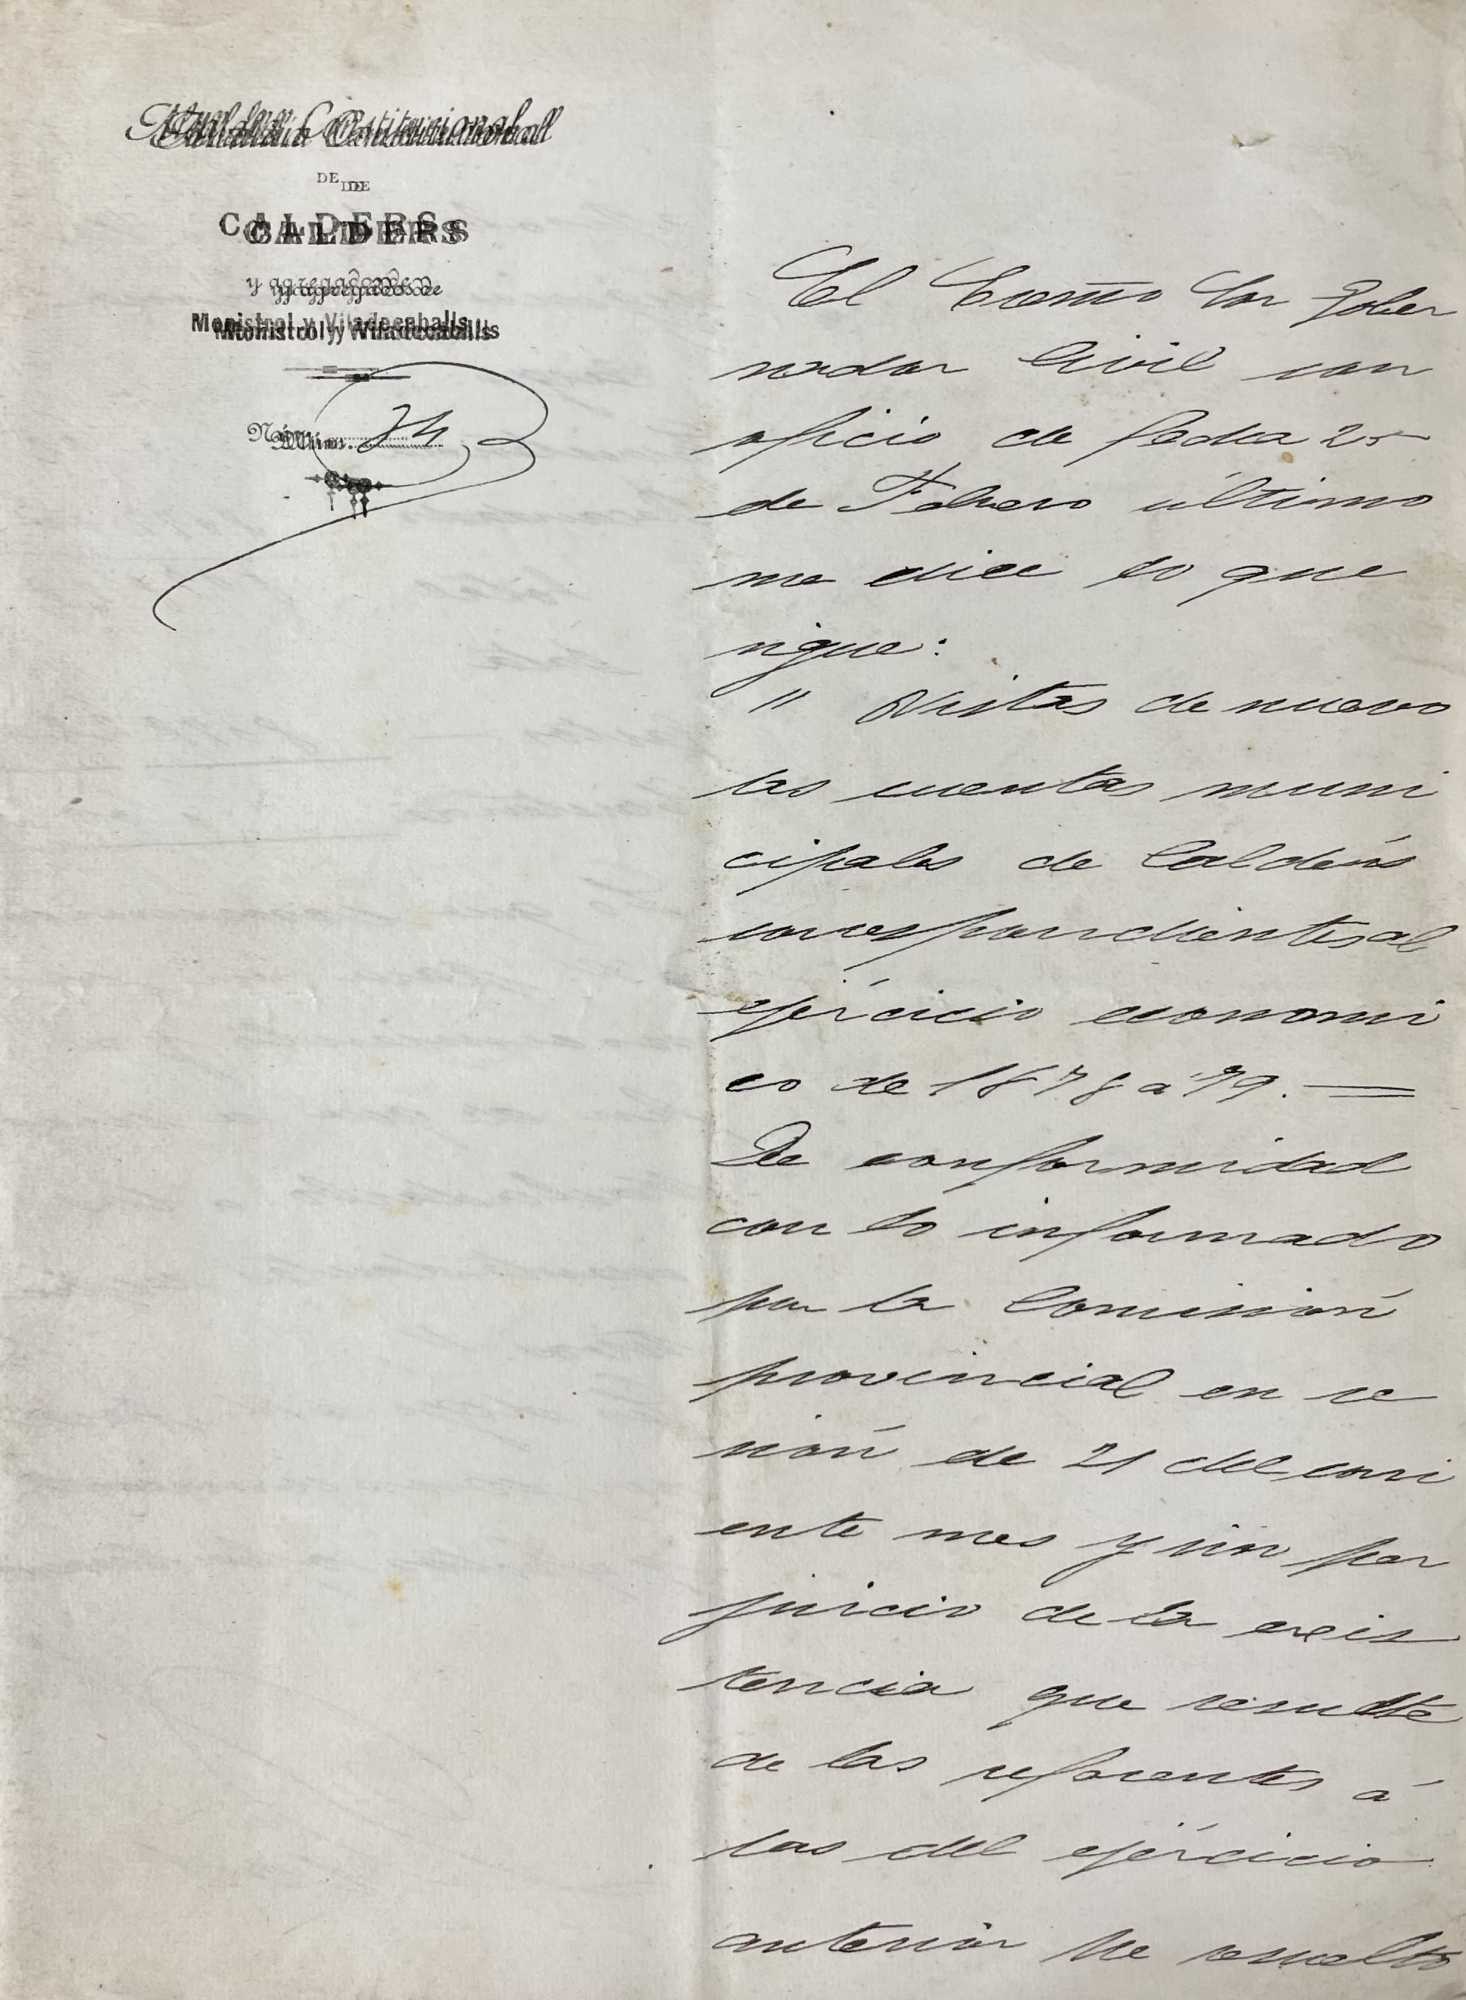 Alcaldía Constitucional
DE
CALDERS
y agregados de
Monistrol y Viladecaballs
Núm. 24
El Excmo Sor Gober
nador Civil con
oficio de fecha 25
de Febrero último
me dice lo que
sigue:
" Vistas de nuevo
las cuentas muni
cipales de Calders
correspondientes al
ejercicio economi
co de 1878 a 79. =
De conformidad
con lo informado
por la Comisión
provincial en se
sión de 21 del corri
ente mes y sin per
juicio de la exis
tencia que resulte
de las referentes á
las del ejercicio
anterior he resuelto